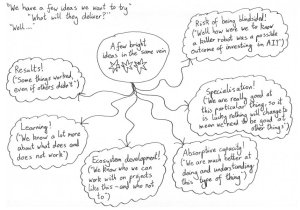 "We have a few ideas we want to try"
"What will they deliver?"
"Well...."
A few bright
ideas in the same vein
Risk of being blindsided!
("Well how were we to know
a killer robot was a possible
outcome of investing in AI?")
Results!
("Some things worked,
even if others didn't")
Specialisation!
("We are really good at
this particular thing, so it
is lucky nothing will change to
mean we need to be good at
other things")
Learning!
("We know a lot more
about what does and
does not work")
Ecosystem development!
("We know who we can
work with on projects
like this - and who
not to")
Absorptive capacity!
("We are much better at
doing and understanding
this type of thing")